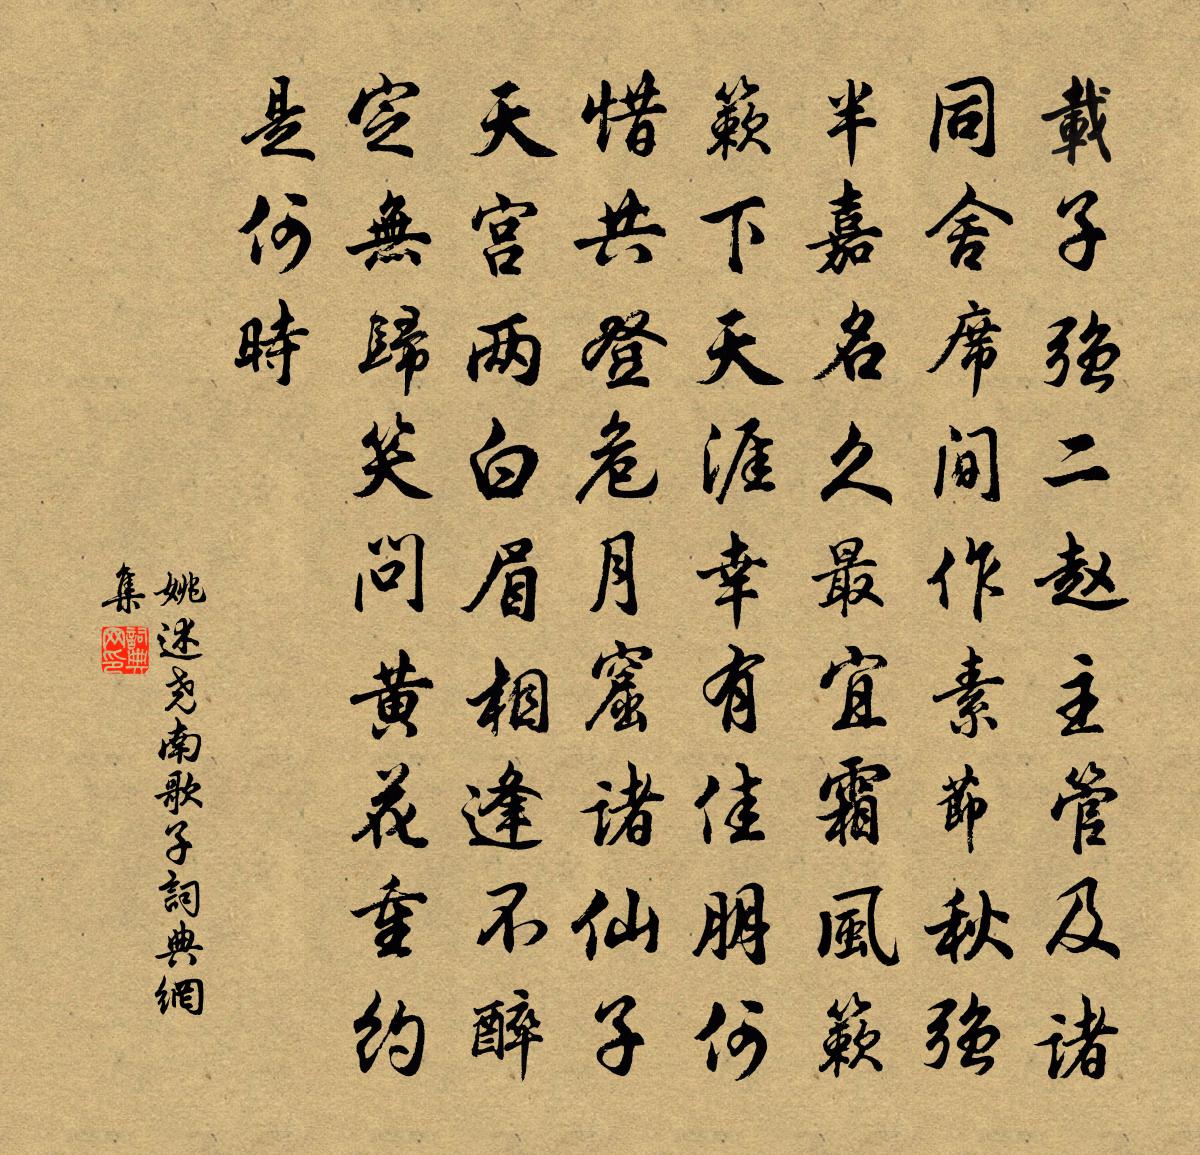 載子強二赵主管及諸
同舍席間作素節秋強
半嘉名久最宜霜風簌
簌下天涯幸有佳朋何
惜共登危月窟諸仙子
天宫两白眉相逢不醉
定無歸笑問黄花重約
是何時
姚述尧南歌子詞典網
集
詞典网印